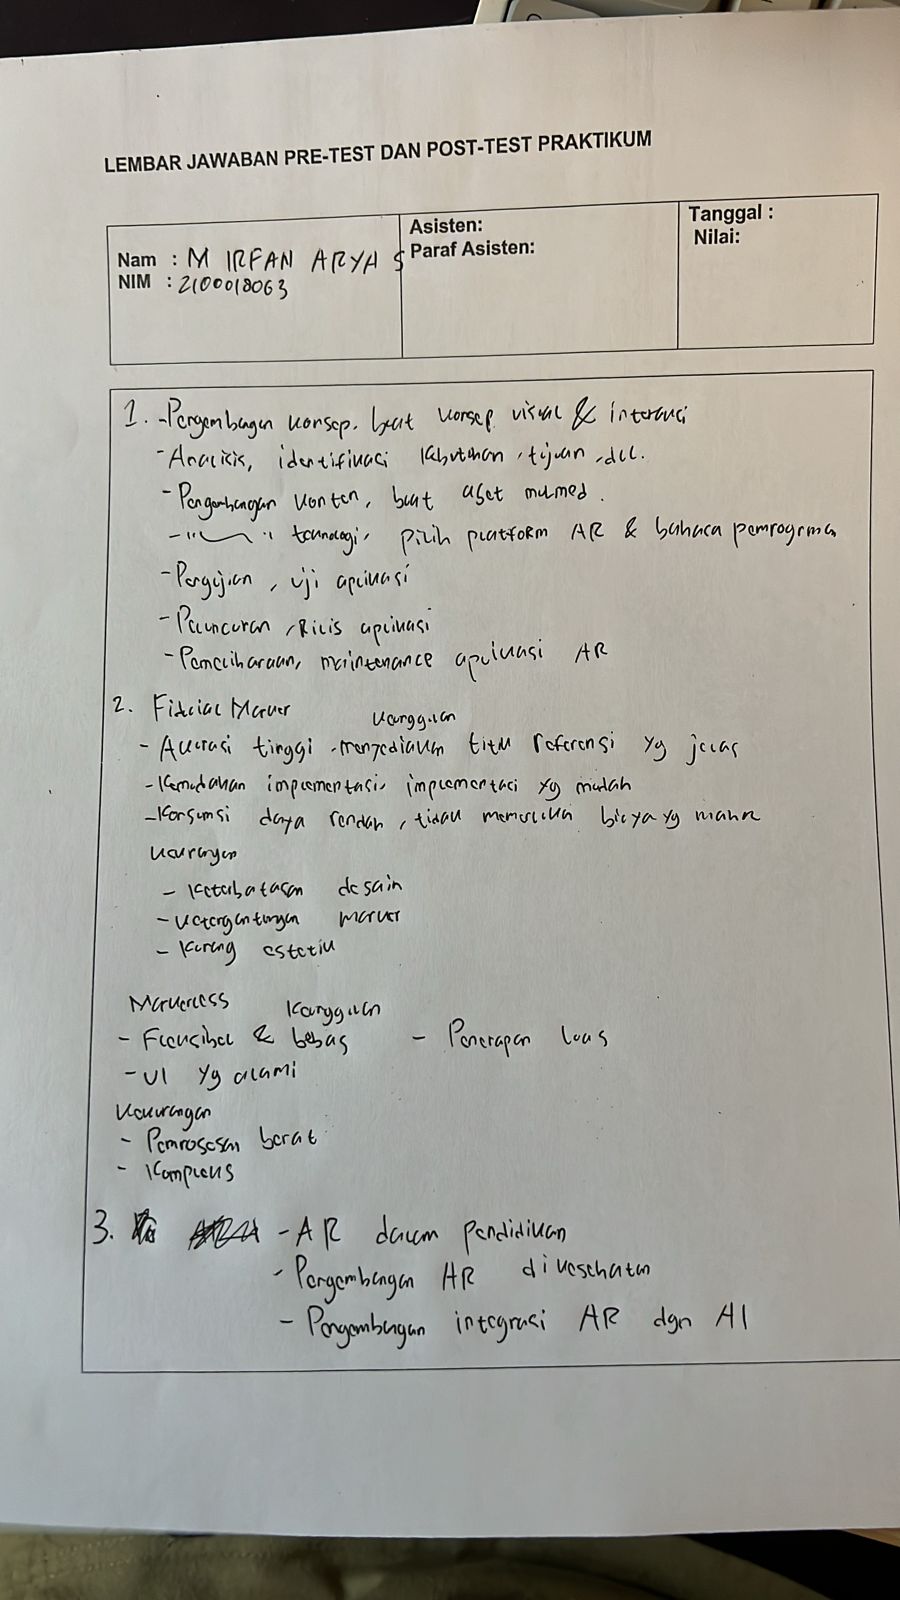 LEMBAR JAWABAN PRE-TEST DAN POST-TEST PRAKTIKUM
Nam : M IRFAN ARYA S
NIM : 2100018063
Asisten:
Paraf Asisten:
Tanggal :
Nilai:
1. - Pengembangan konsep. buat konsep visual & interaksi
- Analisis, identifikasi kebutuhan, tujuan, dll.
- Pengembangan konten, buat aset mulmed.
- " " teknologi, pilih platform AR & bahasa pemrograman
- Pengujian, uji aplikasi
- Peluncuran, Rilis aplikasi
- Pemeliharaan, maintenance aplikasi AR
2. Fiducial Marker
Keunggulan
- Akurasi tinggi - menyediakan titik referensi yg jelas
- Kemudahan implementasi, implementasi yg mudah
- Konsumsi daya rendah, tidak memerlukan biaya yg mahal
Kekurangan
- Keterbatasan desain
- Ketergantungan marker
- Kurang estetik
Markerless Keunggulan
- Fleksibel & bebas - Penerapan luas
- UI yg alami
Kekurangan
- Pemrosesan berat
- Kompleks
3. - AR dalam pendidikan
- Pengembangan AR di kesehatan
- Pengembangan integrasi AR dgn AI